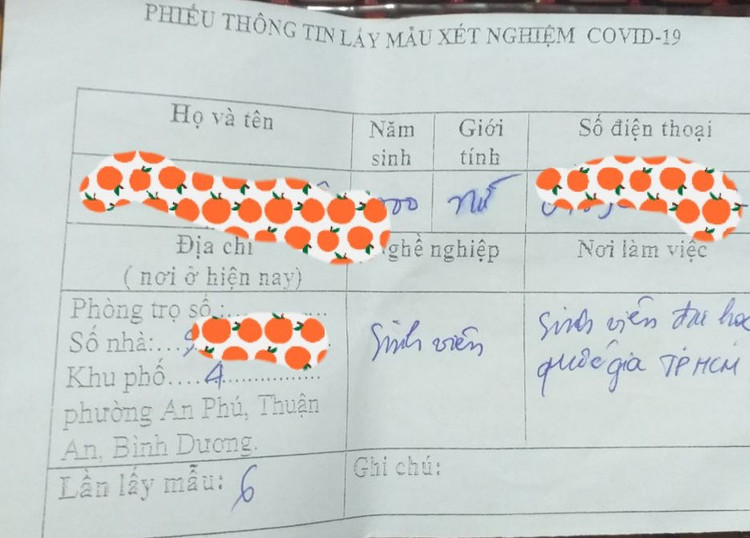 PHIẾU THÔNG TIN LẤY MẪU XÉT NGHIỆM COVID-19
Họ và tên
Năm sinh
Giới tính
Số điện thoại
000 nữ
Địa chỉ
( nơi ở hiện nay)
ghề nghiệp
Nơi làm việc
Phòng trọ số:
Số nhà:
Khu phố....4
phường An Phú, Thuận
An, Bình Dương.
Sinh viên
Sinh viên đại học
quốc gia TPHCM
Lần lấy mẫu: 6
Ghi chú: